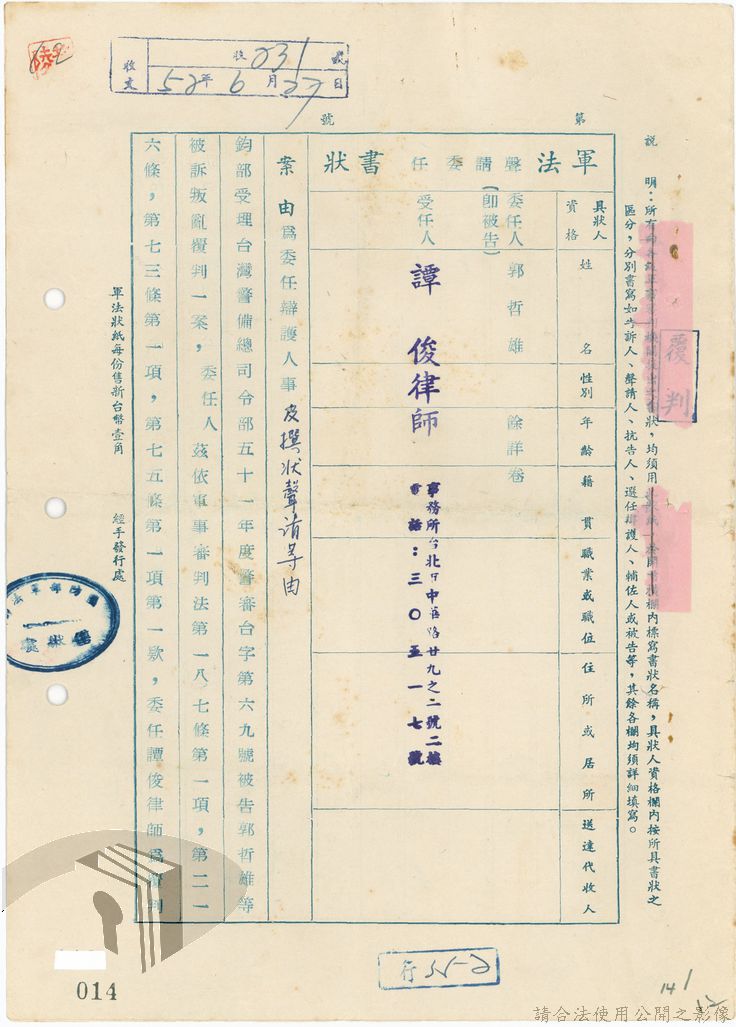 收文
收 031 號
52年6月27日
第
號
說明:所有
狀,均須用
欄內標寫書狀名稱,具狀人資格欄內按所具書狀之
區分,分別書寫如告訴人、聲請人、抗告人、選任辯護人、輔佐人或被告等,其餘各欄均須詳細填寫。
覆判
軍法聲請委任書狀
具狀人
資格
姓名
性別
年齡
籍貫
職業或職位
住所或居所
送達代收人
委任人
(即被告)
郭哲雄
餘詳卷
受任人
譚俊律師
事務所台北市中華路廿九之二號二樓
電話:三〇五一七號
案由為委任辯護人事及撰狀聲請等由
鈞部受理台灣警備總司令部五十一年度警審台字第六九號被告郭哲雄等
被訴叛亂覆判一案,委任人茲依軍事審判法第一八七條第一項,第二一
六條,第七三條第一項,第七五條第一項第一款,委任譚俊律師為覆判
軍法狀紙每份售新台幣壹角
經手發行處
行55-2
014
141
請合法使用公開之影像